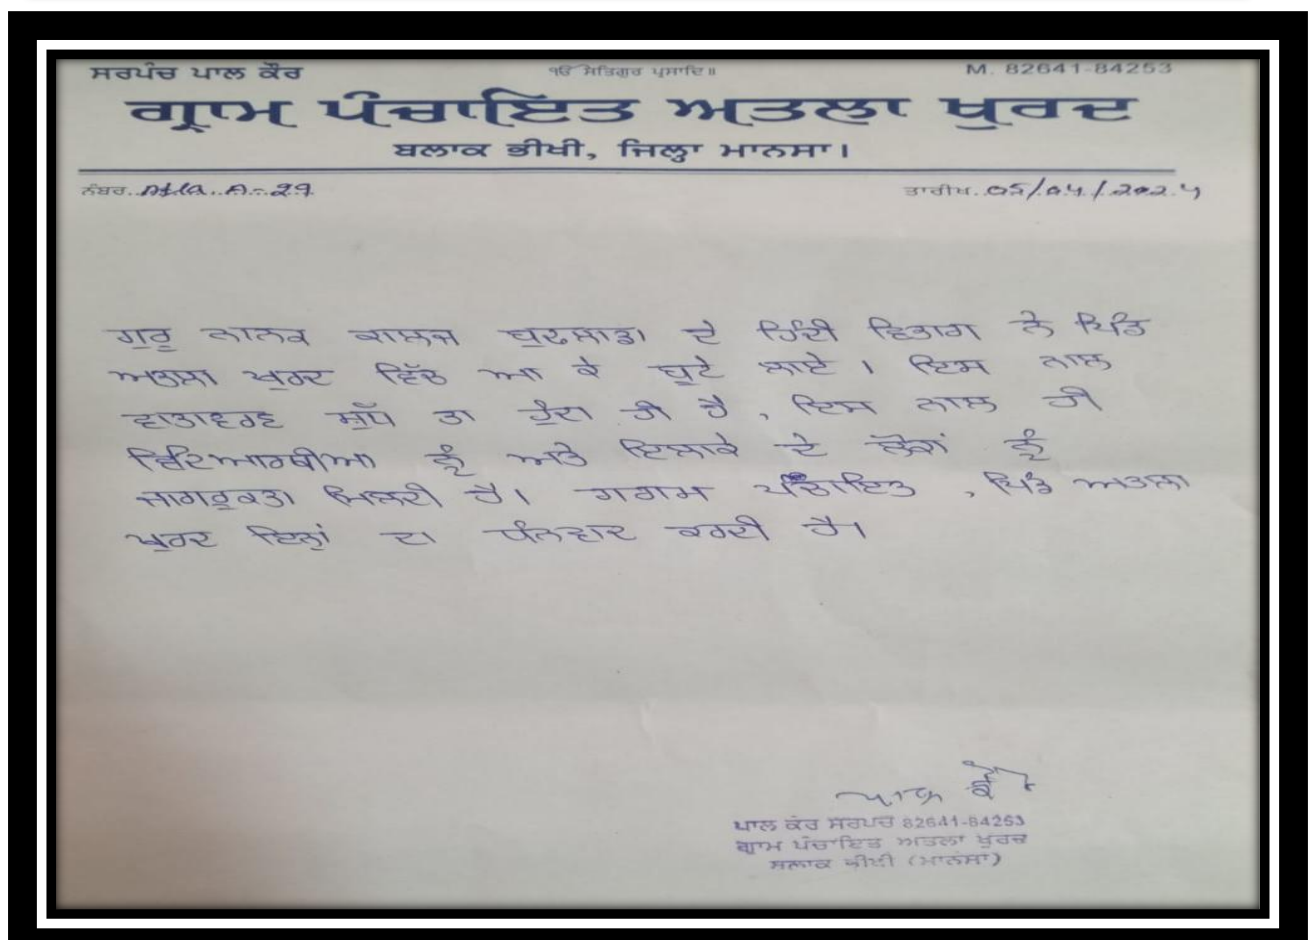 ਸਰਪੰਚ ਪਾਲ ਕੌਰ ੴ ਸਤਿਗੁਰ ਪ੍ਰਸਾਦਿ॥ M. 82641-84253
ਗ੍ਰਾਮ ਪੰਚਾਇਤ ਅਤਲਾ ਖੁਰਦ
ਬਲਾਕ ਭੀਖੀ, ਜਿਲ੍ਹਾ ਮਾਨਸਾ।
ਨੰਬਰ. Atla. A-29 ਤਾਰੀਖ. 05/04/2024
ਗੁਰੂ ਨਾਨਕ ਕਾਲਜ ਬੁਢਲਾਡਾ ਦੇ ਹਿੰਦੀ ਵਿਭਾਗ ਨੇ ਪਿੰਡ
ਅਤਲਾ ਖੁਰਦ ਵਿੱਚ ਆ ਕੇ ਬੂਟੇ ਲਾਏ। ਇਸ ਨਾਲ
ਵਾਤਾਵਰਣ ਸ਼ੁੱਧ ਤਾ ਹੁੰਦਾ ਹੀ ਹੈ, ਇਸ ਨਾਲ ਹੀ
ਵਿਦਿਆਰਥੀਆ ਨੂੰ ਅਤੇ ਇਲਾਕੇ ਦੇ ਲੋਕਾਂ ਨੂੰ
ਜਾਗਰੂਕਤਾ ਮਿਲਦੀ ਹੈ। ਗਰਾਮ ਪੰਚਾਇਤ, ਪਿੰਡ ਅਤਲਾ
ਖੁਰਦ ਇਨ੍ਹਾਂ ਦਾ ਧੰਨਵਾਦ ਕਰਦੀ ਹੈ।
ਪਾਲ ਕੌਰ
ਪਾਲ ਕੌਰ ਸਰਪੰਚ 82641-84253
ਗ੍ਰਾਮ ਪੰਚਾਇਤ ਅਤਲਾ ਖੁਰਦ
ਬਲਾਕ ਭੀਖੀ (ਮਾਨਸਾ)